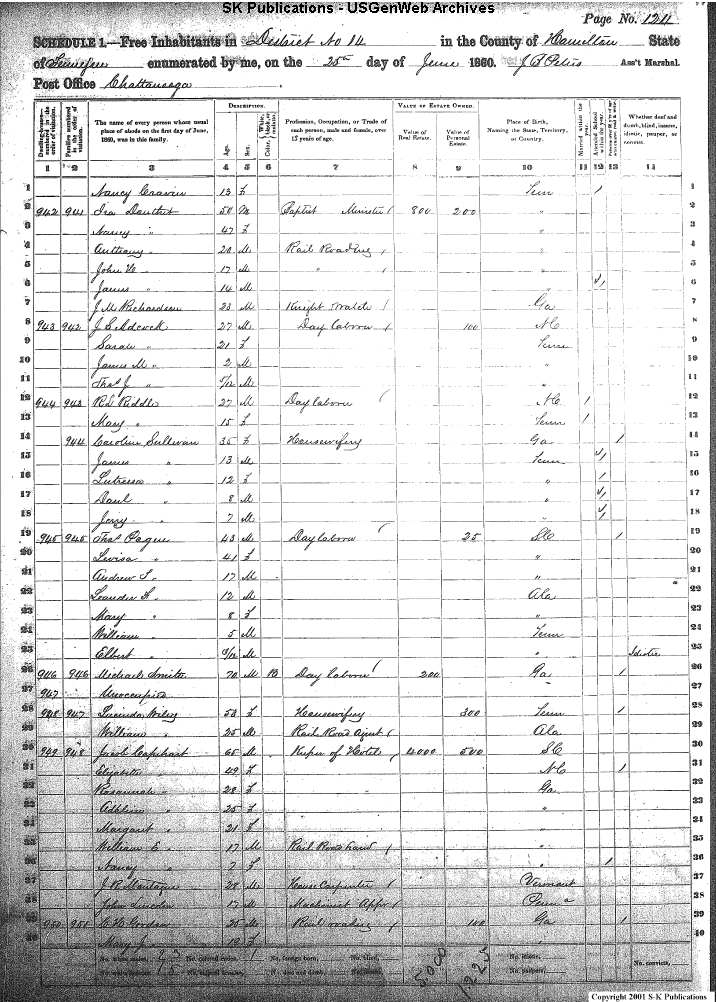 SK Publications - USGenWeb Archives
Page No. 124
SCHEDULE 1.—Free Inhabitants in District No 14 in the County of Hamilton State
of Tennessee enumerated by me, on the 25th day of June 1860. J B Peters Ass't Marshal.
Post Office Chattanooga
Dwelling-houses numbered in the order of visitation.
Families numbered in the order of visitation.
The name of every person whose usual place of abode on the first day of June, 1860, was in this family.
DESCRIPTION.
Age.
Sex.
Color, White, black, or mulatto.
Profession, Occupation, or Trade of each person, male and female, over 15 years of age.
VALUE OF ESTATE OWNED.
Value of Real Estate.
Value of Personal Estate.
Place of Birth, Naming the State, Territory, or Country.
Married within the year.
Attended School within the year.
Whether deaf and dumb, blind, insane, idiotic, pauper, or convict.
1 2 3 4 5 6 7 8 9 10 11 12 13 14
1 Nancy Cravin 13 F Tenn / 1
2 942 941 Ira Douthet 50 M Baptist Minister / 800 200 " 2
3 Nancy " 47 F " 3
4 Anthony " 20 M Rail Roading / " 4
5 John W " 17 M " / " 5
6 James " 14 M " / 6
7 J M Richardson 23 M Knight Watch / Ga 7
8 943 942 27 M Day labour / 100 NC 8
9 Sarah " 21 F Tenn 9
10 James M " 2 M " 10
11 Thos J " 5/12 M " 11
12 944 943 R L Riddle 27 M Day labour / NC / 12
13 Mary " 15 F Tenn / 13
14 944 Caroline Sullivan 35 F Housewifery Ga / 14
15 James " 13 M Tenn / 15
16 12 F " / 16
17 8 M " / 17
18 Jerry " 7 M " / 18
19 945 945 Thos Pogue 43 M Day labour / 25 SC / 19
20 Levisa " 41 F " 20
21 Andrew J " 17 M " 21
22 Leander " 12 M Ala 22
23 Mary " 8 F " 23
24 William " 5 M Tenn 24
25 Elbert " M " Idiotic 25
26 946 946 Michael Smith 70 M B Day labour / 200 Ga / 26
27 947 Unoccupied 27
28 948 947 Lucinda Wiley 50 F Housewifery 300 Tenn / 28
29 William " 25 M Rail Road Agent / Ala 29
30 949 948 Jacob Capehart 65 M Keeper of Hotel / 4000 500 SC 30
31 Elizabeth " 49 F NC / 31
32 Rosannah " 28 F " Ga 32
33 Adaline " 25 F " 33
34 Margaret " 21 F " 34
35 William E " 17 M Rail Road hand / " 35
36 Nancy " 7 F " / 36
37 J R Montague 28 M House Carpenter / Vermont 37
38 John Lincoln 17 M Machinist Appr / Penn a 38
39 950 951 Gordon 25 M Rail roading / 100 Ga / 39
40 Mary J " 19 F " 40
No. white males, 23 No. colored males, 1 No. foreign born, No. blind, 5000 1225 No. idiotic, No. convicts,
No. white females, 15 No. colored females, No. deaf and dumb, No. insane, No. paupers,
Copyright 2001 S-K Publications